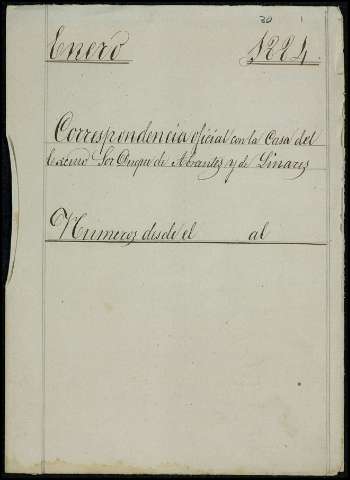 30 1
Enero 1884.
Correspondencia oficial con la Casa del
Excmo Sor Duque de Abrantes y de Linares
Numeros desde el al